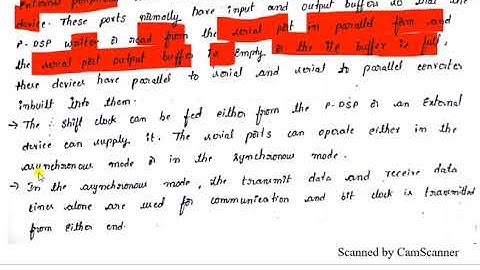 External
device. These ports normally have input and output buffers so that the
P-DSP writes or read from the serial port in parallel form and
the serial port output buffer is empty or the i/p buffer is full,
these devices have parallel to serial and serial to parallel converter
inbuilt into them.
→ The shift clock can be fed either from the P-DSP or an External
device can supply it. The serial ports can operate either in the
asynchronous mode or in the synchronous mode.
→ In the asynchronous mode, the transmit data and receive data
lines alone are used for communication and bit clock is transmitted
from either end.
Scanned by CamScanner